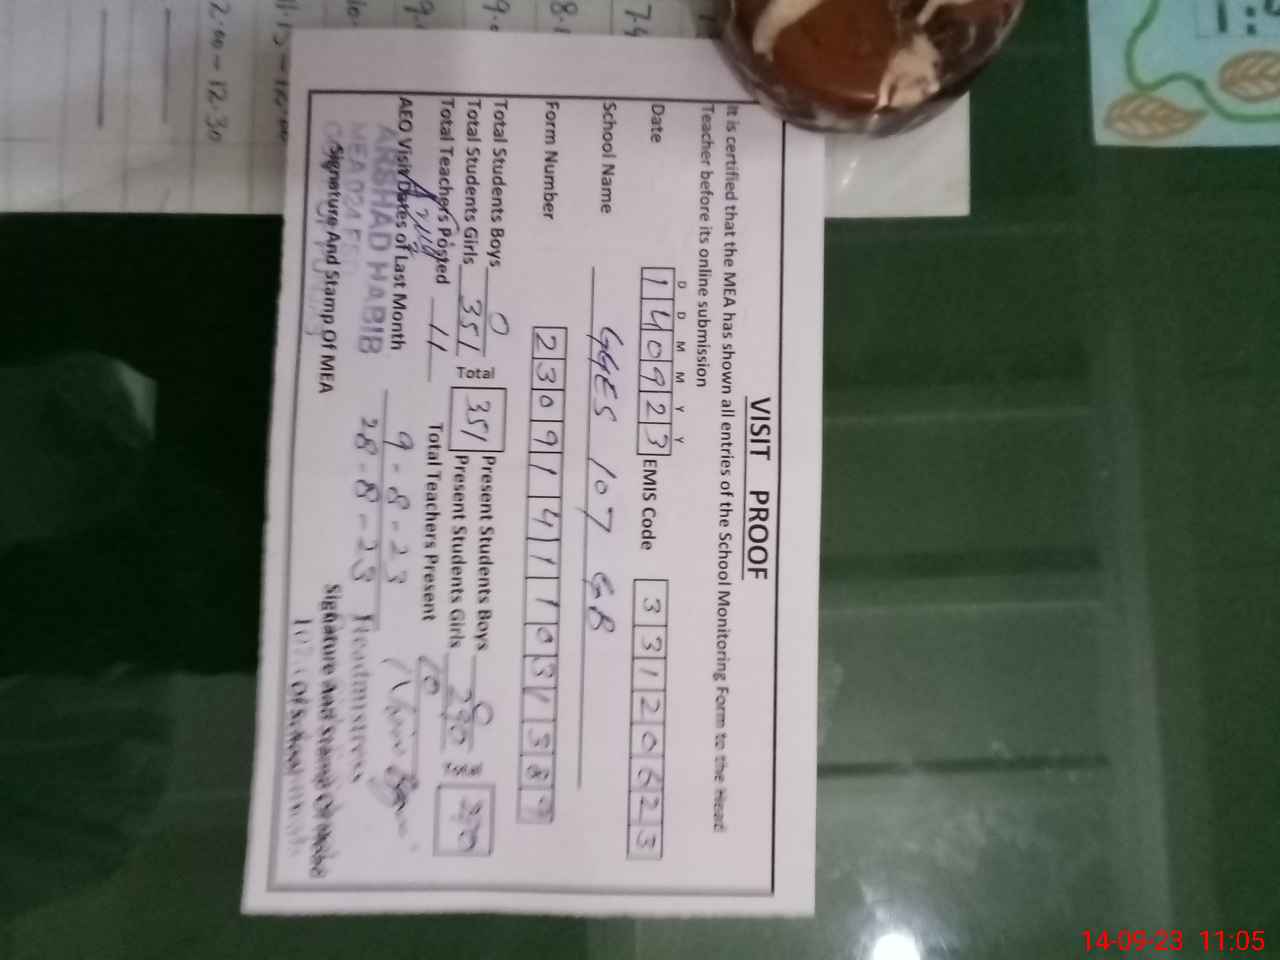 VISIT PROOF
It is certified that the MEA has shown all entries of the School Monitoring Form to the Head
Teacher before its online submission
D D M M Y Y
Date 140923 EMIS Code 33120623
School Name GGES 107 GB
Form Number 2309141103
Total Students Boys 0 Present Students Boys 0
Total Students Girls 351 Total 351 Present Students Girls
Total Teachers Posted 11 Total Teachers Present 10
AEO Visit Dates of Last Month 9-8-23
28-8-23
ARSHAD HABIB
MEA 024
Headmistress
Signature And Stamp Of MEA
Signature And Stamp Of
Of School
2:00-12:30
14-09-23 11:05